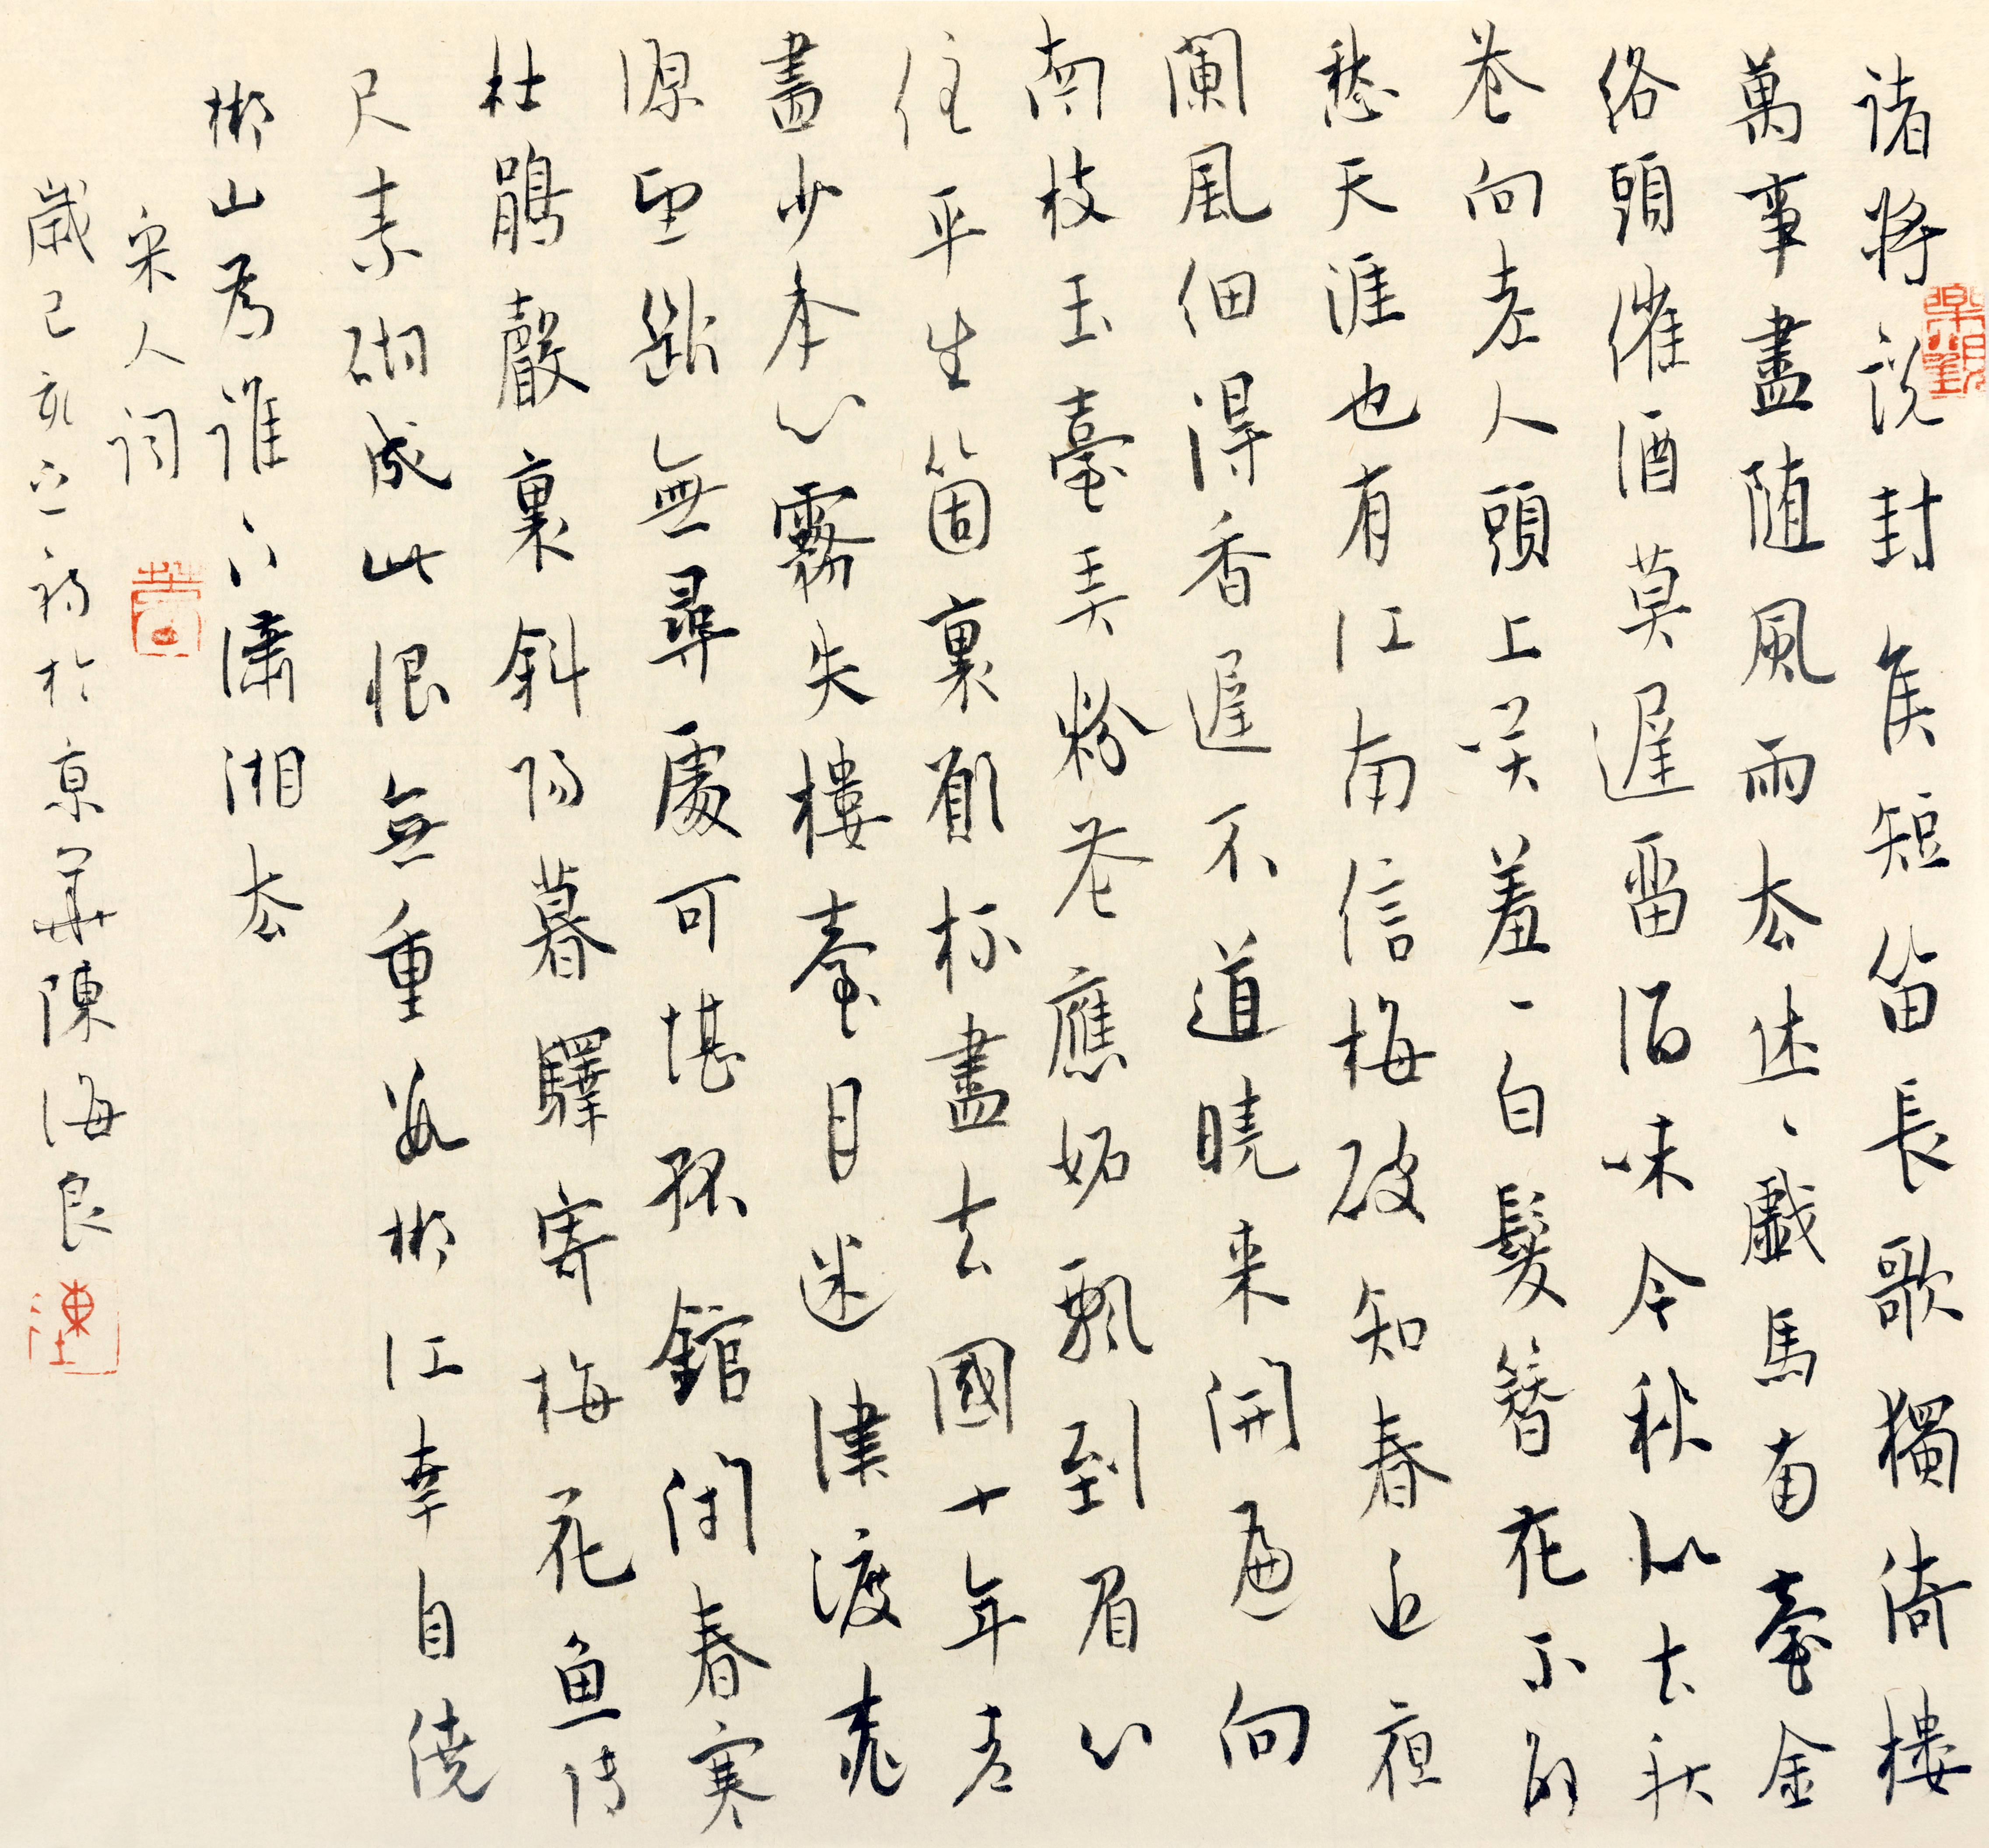 諸將說封侯短笛長歌獨倚樓
萬事盡隨風雨去休、戲馬南臺金
絡頭催酒莫遲留酒味今秋似去秋
花向老人頭上笑羞、白髮簪花不解
愁天涯也有江南信梅破知春近夜
闌風細得香遲不道曉來開遍向
南枝玉臺弄粉花應妬飄到眉心
住平生箇裏願杯深去國十年老
盡少年心霧失樓臺月迷津渡桃
源望斷無尋處可堪孤館閉春寒
杜鵑聲裏斜陽暮驛寄梅花魚傳
尺素砌成此恨無重數郴江幸自繞
郴山為誰流下瀟湘去
宋人詞
歲己亥立於京華陳海良